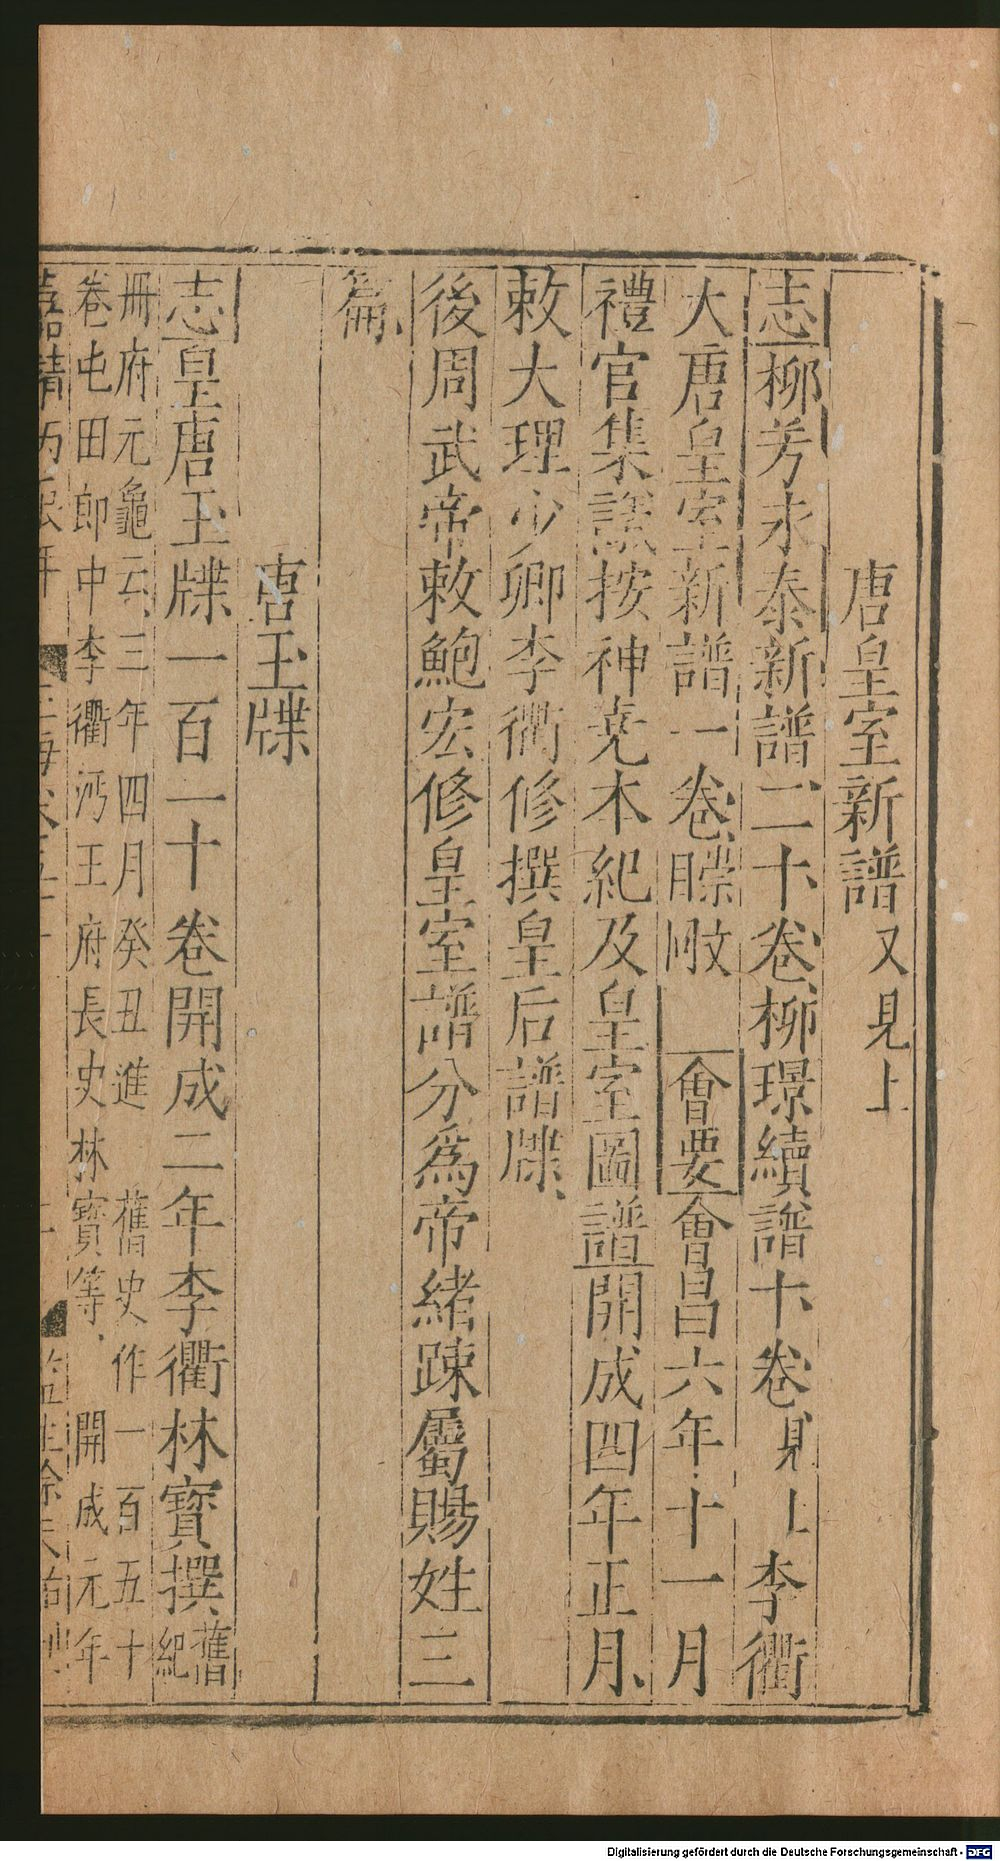 唐皇室新譜又見上
志柳芳永泰新譜二十卷柳璟續譜十卷見上李衢
大唐皇室新譜一卷㬓㫝會要會昌六年十一月
禮官集議按神堯本紀及皇室圖譜開成四年正月
敕大理少卿李衢修撰皇后譜牒
後周武帝敕鮑宏修皇室譜分為帝緒疎屬賜姓三
篇
唐玉牒
志皇唐玉牒一百一十卷開成二年李衢林寶撰舊紀
冊府元龜云三年四月癸丑進 舊史作一百五十
卷屯田郎中李衢沔王府長史林寶等 開成元年
Digitalisierung gefördert durch die Deutsche Forschungsgemeinschaft - DFG